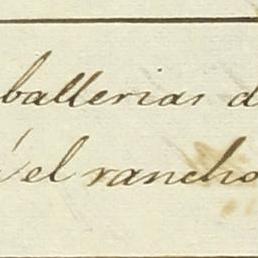 ballerias d
el rancho